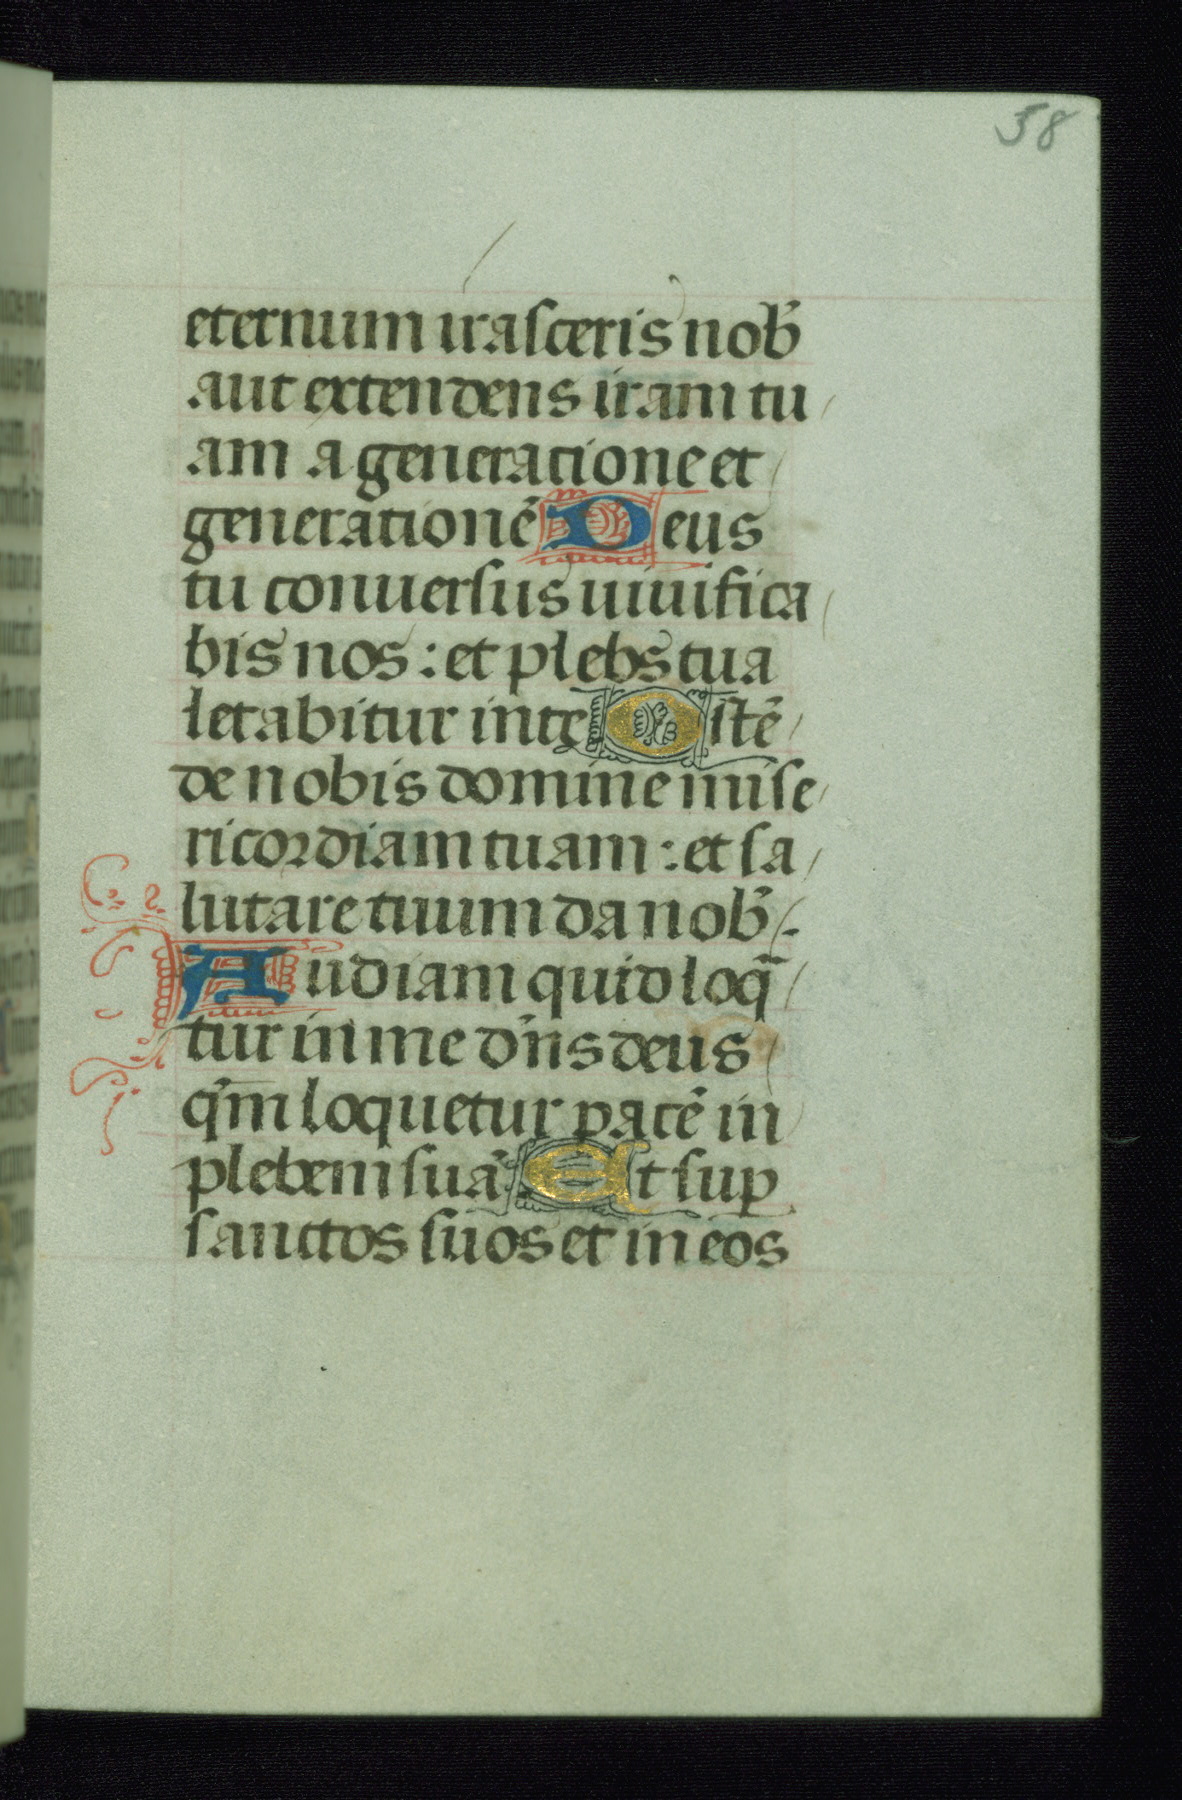 58
eternum irasceris nob̃
aut extendens iram tu
am a generatione et
generationẽ Deus
tu conuersus uiuifica
bis nos : et plebs tua
letabitur in te Ostẽ
de nobis domine mise
ricordiam tuam : et sa
lutare tuum da nob̃.
Audiam quid loq̃
tur in me dñs deus
qm̃ loquetur pacẽ in
plebem suã. Et sup
sanctos suos et in eos